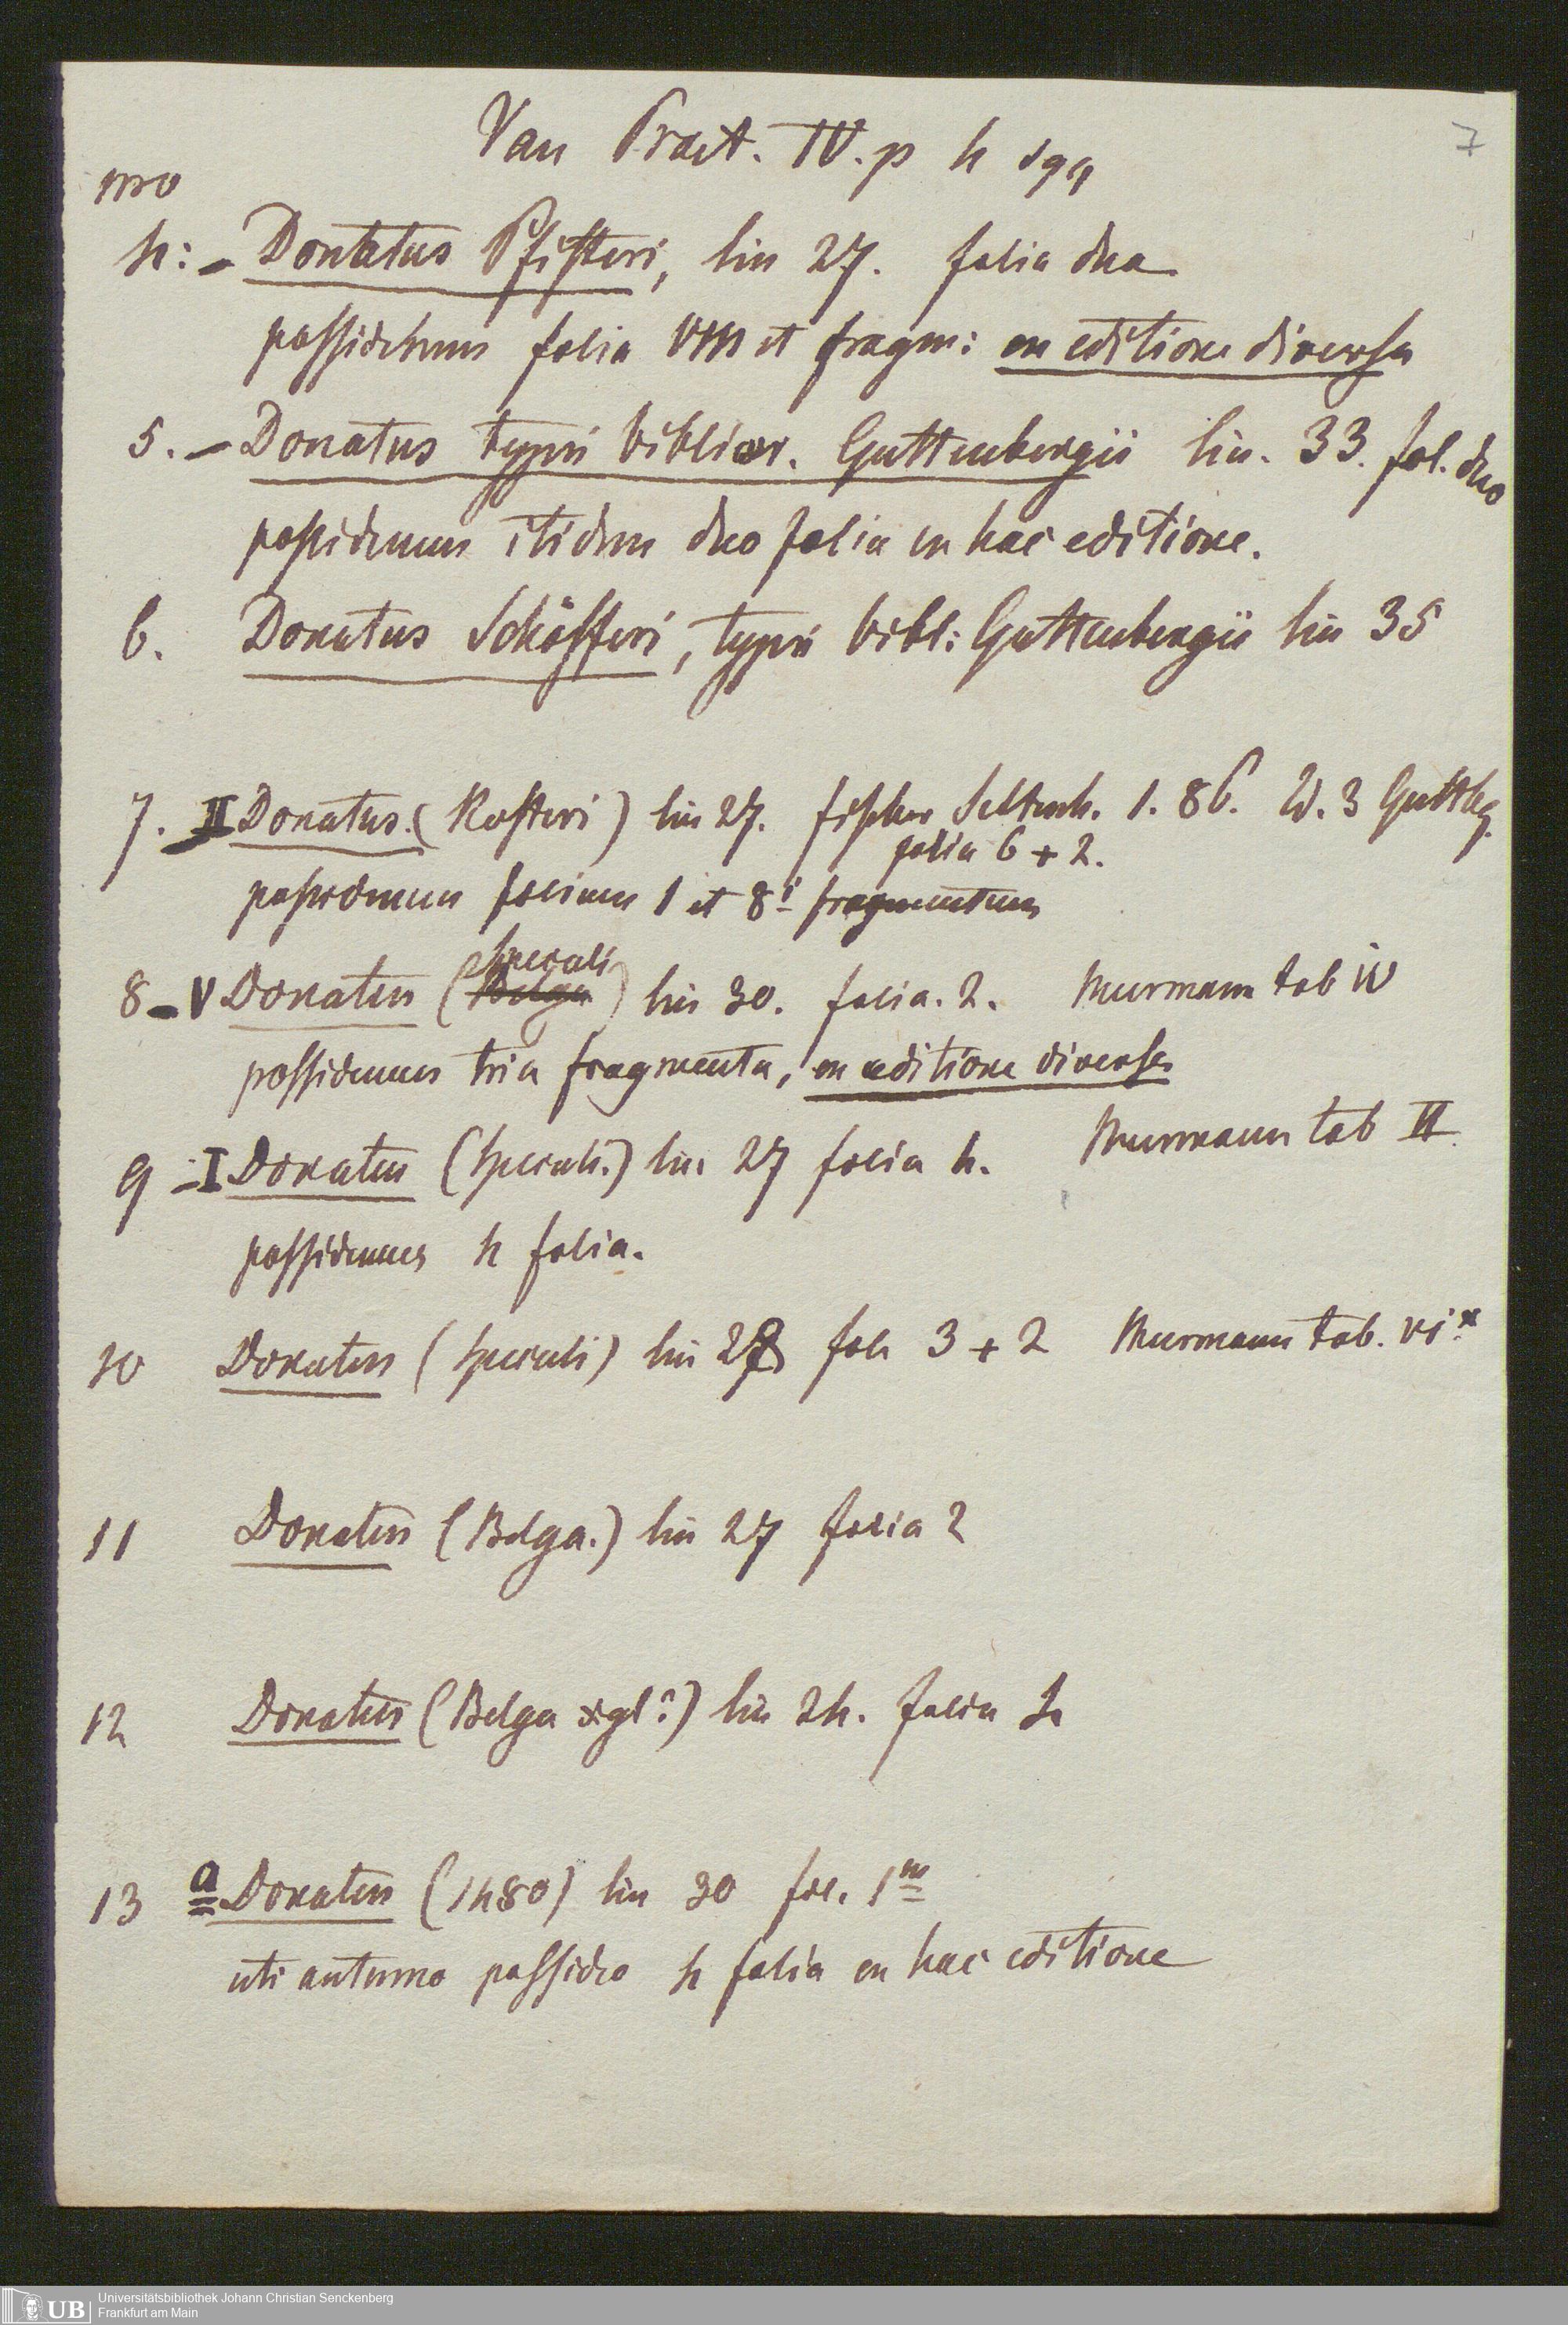 Van Praet. IV. p 4 sqq
7
nro
4: - Donatus Pfisteri, lin 27. folia duo
possidemus folia VIII et fragm: en editione diversa
5. - Donatus typis biblior. Guttenbergii lin. 33. fol. duo
possidemus itidem duo folia en hac editione.
6. Donatus Schöfferi, typis bibl: Guttenbergii lin 35
7. II Donatus. (Kosteri) lin 27. Fischer Seltenh. 1. 86. W. 3 Guttbg.
folia 6 + 2.
possidemus folium 1 et 8i fragmentum
speculi
8 - V Donatus (Belga) lin 30. folia. 2. Meermann tab IV
possidemus tria fragmenta, en editione diversa
9 - I Donatus (speculi.) lin 27 folia 4. Meermann tab II.
possidemus 4 folia.
10 Donatus (speculi) lin 28 fol 3 + 2 Meermann tab. VI.x
11 Donatus (Belga.) lin 27 folia 2
12 Donatus (Belga xyl?) lin 24. folia 4
13 a Donatus (1480) lin 30 fol. 1m
uti autumo possideo 4 folia en hac editione
UB Universitätsbibliothek Johann Christian Senckenberg
Frankfurt am Main